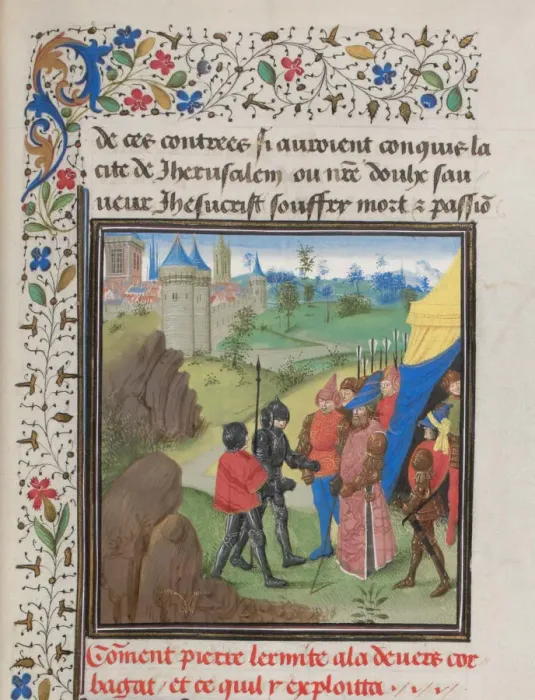 de ces contrees si auroient conquis la
cite de Jherusalem ou nre doulx sau
ueur Jhesucrist souffry mort & passio
Coment pierre lermite ala deuers cor
bagat / et ce quil y exploitta